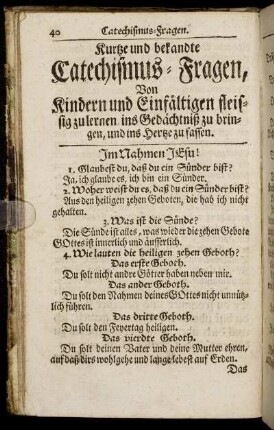 40 Catechismus-Fragen.
Kurtze und bekandte
Catechismus-Fragen,
Von
Kindern und Einfältigen fleis-
sig zu lernen ins Gedächtniß zu brin-
gen, und ins Hertze zu fassen.
Im Nahmen JEsu!
1. Glaubest du, daß du ein Sünder bist?
Ja, ich glaube es, ich bin ein Sünder.
2. Woher weist du es, daß du ein Sünder bist?
Aus den heiligen zehen Geboten, die hab ich nicht
gehalten.
3. Was ist die Sünde?
Die Sünde ist alles, was wieder die zehen Gebote
GOttes ist innerlich und äusserlich.
4. Wie lauten die heiligen zehen Geboth?
Das erste Geboth.
Du solt nicht andre Götter haben neben mir.
Das ander Geboth.
Du solt den Nahmen deines GOttes nicht unnütz-
lich führen.
Das dritte Geboth.
Du solt den Feyertag heiligen.
Das vierdte Geboth.
Du solt deinen Vater und deine Mutter ehren,
auf daß dirs wohlgehe und lange lebest auf Erden.
Das